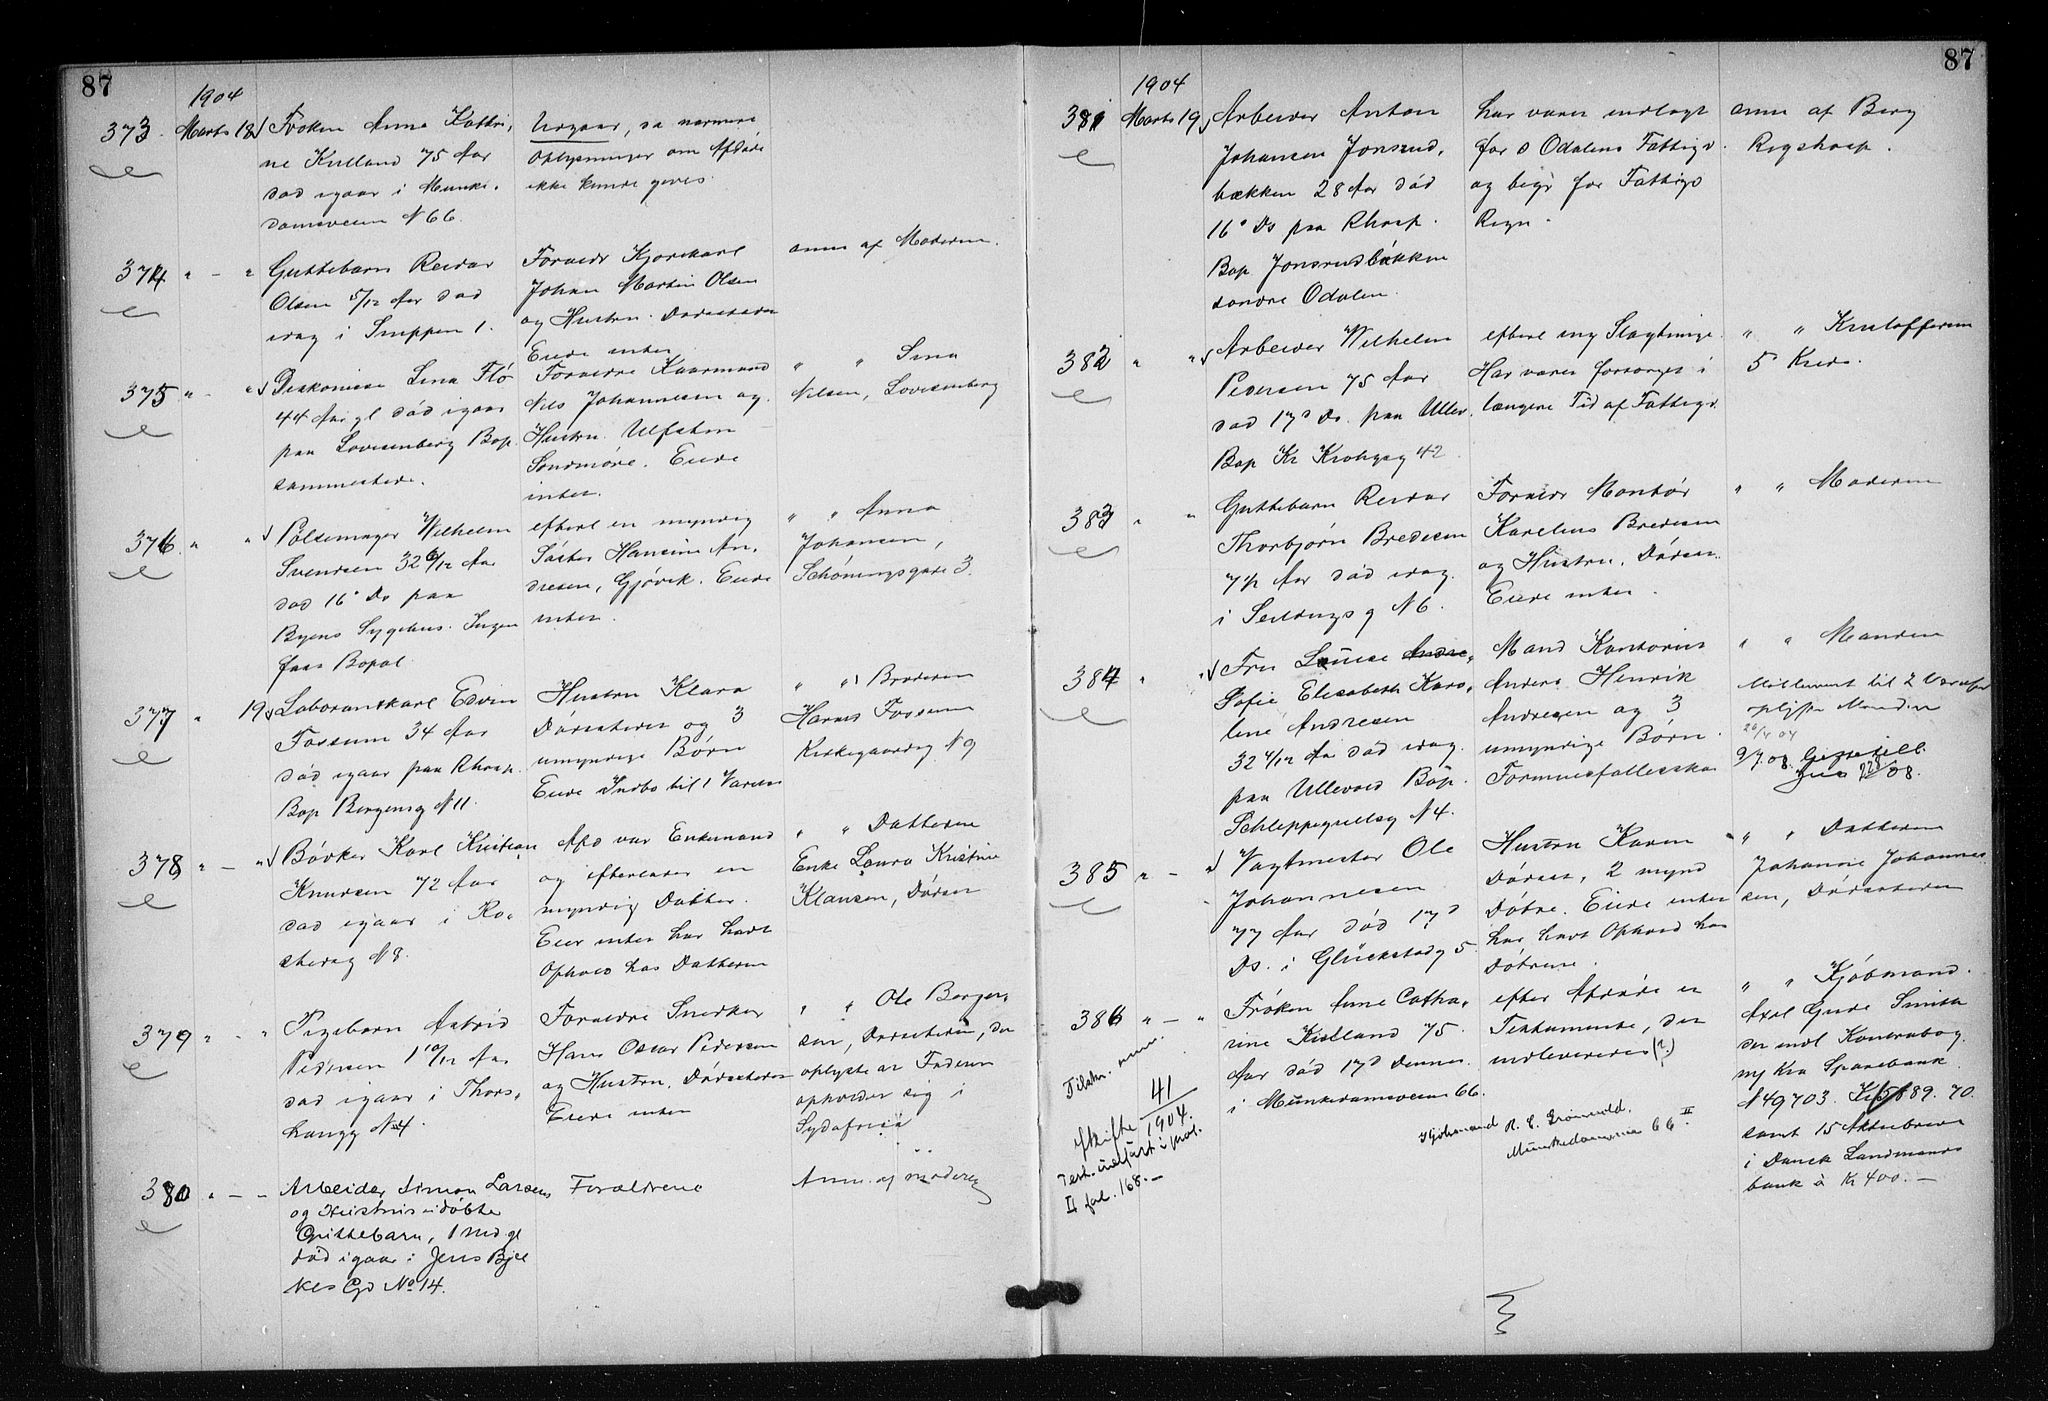 87
1904
373. Marts 18 Frøken Anna Kathri-
ne Kielland 75 Aar
død igaar i Munke-
damsveien N 66.
Udgaar, da nærmere
Oplysninger om Afdøde
ikke kunde gives.
374 " - " Guttebarn Reidar
Olsen 5/12 Aar død
idag i Snippen 1.
Foreldr Kjørekarl
Johan Martin Olsen
og Hustru. Dødsstedet
Eiede intet
anm af Moderen.
375 " - " Diakonisse Lina Flø
44 Aar gl død igaar
paa Lovisenberg Bop.
sammesteds.
Foreldre Gaardmand
Nils Johannesen og
Hustru. Ulfsten
Søndmøre. Eiede
intet.
" " Lina
Nilsen, Lovisenberg
376. " " Pølsemager Wilhelm
Svendsen 32 6/12 Aar
død 16' Ds paa
Byens Sygehus. Ingen
fast Bopæl.
efterl en myndig
Søster Hansine An-
dresen, Gjøvik. Eiede
intet.
" " Anna
Johansen,
Schøningsgade 3.
377 " 19 Laborantkarl Edvin
Fossum 34 Aar
død igaar paa Rhosp.
Bop Bergensg N 11.
Hustru Klara
Dødsstedet og 3
umyndige Børn
Eiede Indbo til 1 Værelse
" " Broderen
Harald Fossum
Kirkegaardsg N 9
378 " - " Bødker Karl Kristian
Knudsen 72 Aar
død igaar i Ro-
stedsg N 8.
Afd var Enkemand
og efterlader en
myndig Datter.
Eier intet har havt
Ophold hos Datteren
" " Datteren
Enke Laura Kristine
Klausen, Dødsst
379 " - " Pigebarn Astrid
Pedersen 1 10/12 Aar
død igaar i Thors-
haugg N 4.
Foreldre Snedker
Hans Oscar Pedersen
og Hustru, Dødsstedet
Eiede intet
" " Ole Berger-
sen, Dødsstedet, der
oplyste at Faderen
opholder sig i
Sydafrika
380 " - " Arbeider Simon Larsens
og Hustrus udøbte
Guttebarn, 1 md gl
død igaar i Jens Bjel
kes Gd No 14.
Forældrene
Anm. af moderen
87
1904
381 Marts 19 Arbeider Anton
Johansen Jonsrud-
bækken 28 Aar død
16' Ds paa Rhosp.
Bop Jonsrudbækken
søndre Odalen.
har været indlagt
for S Odalens Fattigv.
og begr for Fattigv
Regn.
anm af Berg
Rigshosp.
382 " " Arbeider Wilhelm
Pedersen 75 Aar
død 17d Ds. paa Ullev.
Bop Kr Krohgsg 42.
efterl ing Slægtninge.
Har været forsørget i
længere Tid af Fattigv.
" " Kristoffersen
5 Kreds.
383 " " Guttebarn Reidar
Thorbjørn Bredesen
7 1/2 Aar død idag.
i Seilduksg N 6.
Foreldr Montør
Karelius Bredesen
og Hustru, Dødsst.
Eiede intet.
" " Moderen
384 " " Fru Louise
Sofie Elisabeth Karo-
line Andresen
32 4/12 Aar død idag.
paa Ullevold Bop.
Schleppegrellsg N 4.
Mand Kontorist
Anders Henrik
Andresen og 3
umyndige Børn.
Formuesfællesska
" " Manden
Møblement til 2 Værelser
oplyste Manden
26/4 04
385 " - " Vagtmester Ole
Johannesen
77 Aar død 17d
Ds. i Glückstadg 5.
Hustru Karen
Dødsst, 2 mynd
Døtre. Eiede intet
har havt Ophold hos
Døtrene.
" " Datteren
Johanne Johannes
sen, Dødsstedet
386 " - " Frøken Anne Catha-
rine Kielland 75.
Aar død 17d Dennes.
i Munkedamsveien 66.
efter Afdøde er
Testamente, der
indleveredes (?)
Kjøbmand R. E. Grønvold.
Munkedamsveien 66 II
" " Kjøbmand.
Axel Gude Smith
der indl Kontrabog
ny Kra Sparebank
N 49703. Kr 5889.70.
samt 15 Aktiebreve
i Dansk Landmands
bank à Kr 400.-
Tilstr. anm.
Skifte 41/1904.
Test. indført i prot.
II fol. 168.-